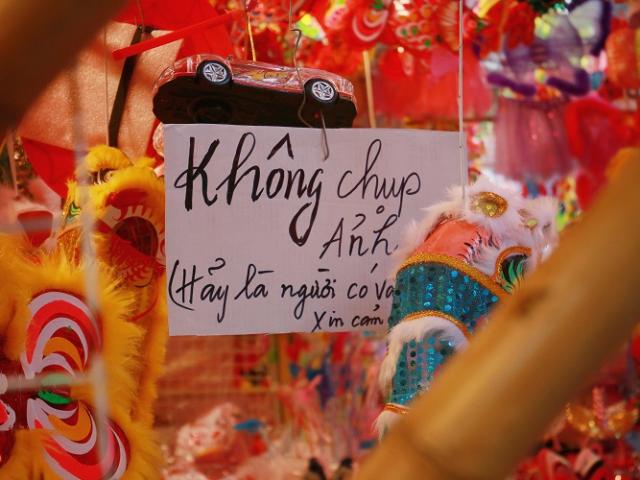 Không chụp
Ảnh
(Hảy là người có
Xin cảm